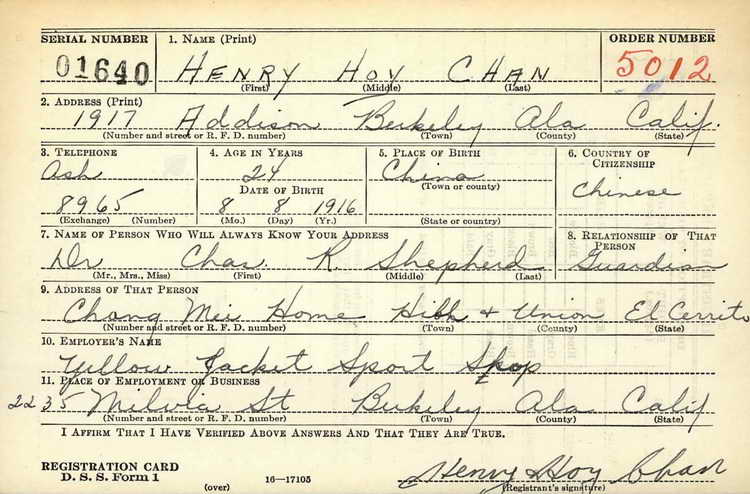 SERIAL NUMBER 1. NAME (Print) ORDER NUMBER
01640 HENRY HOY CHAN 5012
(First) (Middle) (Last)
2. ADDRESS (Print)
1917 Addison Berkeley Ala Calif.
(Number and street or R. F. D. number) (Town) (County) (State)
3. TELEPHONE 4. AGE IN YEARS 5. PLACE OF BIRTH 6. COUNTRY OF CITIZENSHIP
Ash 24 China Chinese
DATE OF BIRTH (Town or county)
8965 8 8 1916
(Exchange) (Number) (Mo.) (Day) (Yr.) (State or country)
7. NAME OF PERSON WHO WILL ALWAYS KNOW YOUR ADDRESS 8. RELATIONSHIP OF THAT PERSON
Dr Chas. R. Shepherd Guardian
(Mr., Mrs., Miss) (First) (Middle) (Last)
9. ADDRESS OF THAT PERSON
Chang Mei Home & Union El Cerrito
(Number and street or R. F. D. number) (Town) (County) (State)
10. EMPLOYER'S NAME
Yellow Jacket Sport Shop
11. PLACE OF EMPLOYMENT OR BUSINESS
2235 Milvia St Berkeley Ala Calif
(Number and street or R. F. D. number) (Town) (County) (State)
I AFFIRM THAT I HAVE VERIFIED ABOVE ANSWERS AND THAT THEY ARE TRUE.
REGISTRATION CARD
D. S. S. Form 1 Henry Hoy Chan
(over) 16—17105 (Registrant's signature)